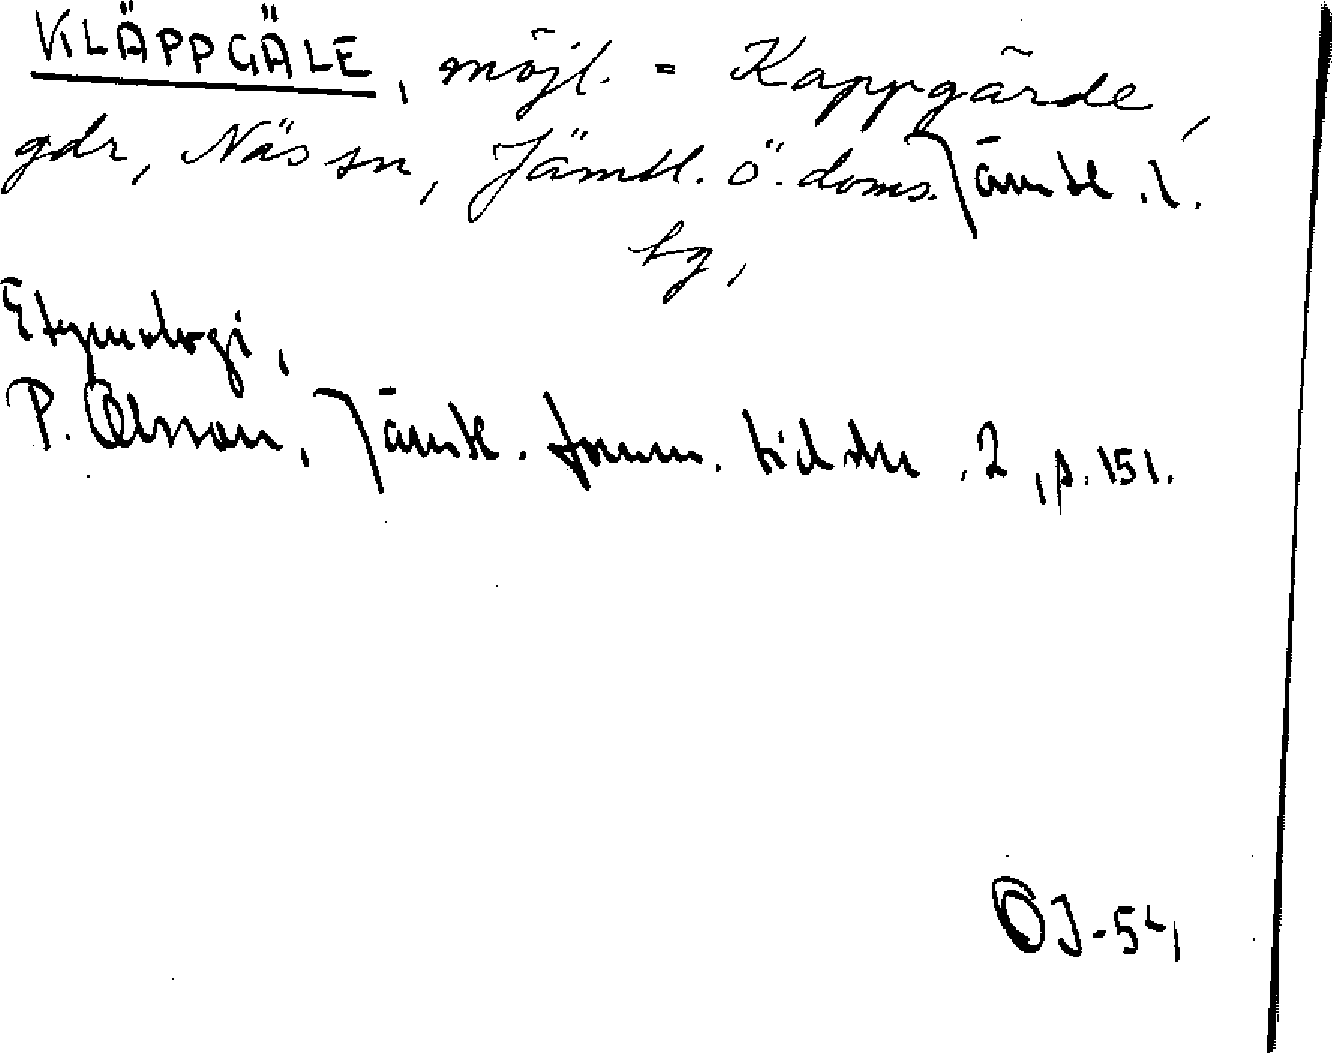 KLÄPPGÄLE, möjl. = Kappgärde,
gdr, Näs sn, Jämtl. ö. doms. Jämtl. l.
sg,
Etymologi,
P. Olsson, Jämtl. fornm. tidskr. 2, p. 151.
OJ-54